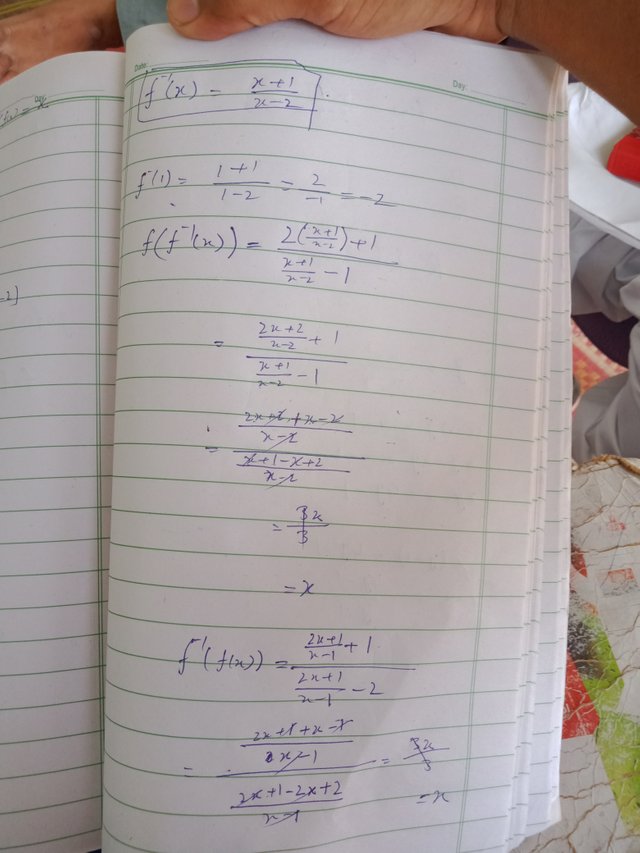 Date:
Day:
f⁻¹(x) = (x+1)/(x-2)
f⁻¹(1) = (1+1)/(1-2) = 2/-1 = -2
f(f⁻¹(x)) = (2((x+1)/(x-2))+1)/((x+1)/(x-2) - 1)
= ((2x+2)/(x-2) + 1)/((x+1)/(x-2) - 1)
= ((2x+2+x-2)/(x-2))/((x+1-x+2)/(x-2))
= 3x/3
= x
f⁻¹(f(x)) = ((2x+1)/(x-1) + 1)/((2x+1)/(x-1) - 2)
= ((2x+1+x-1)/(x-1))/((2x+1-2x+2)/(x-1)) = 3x/3
= x